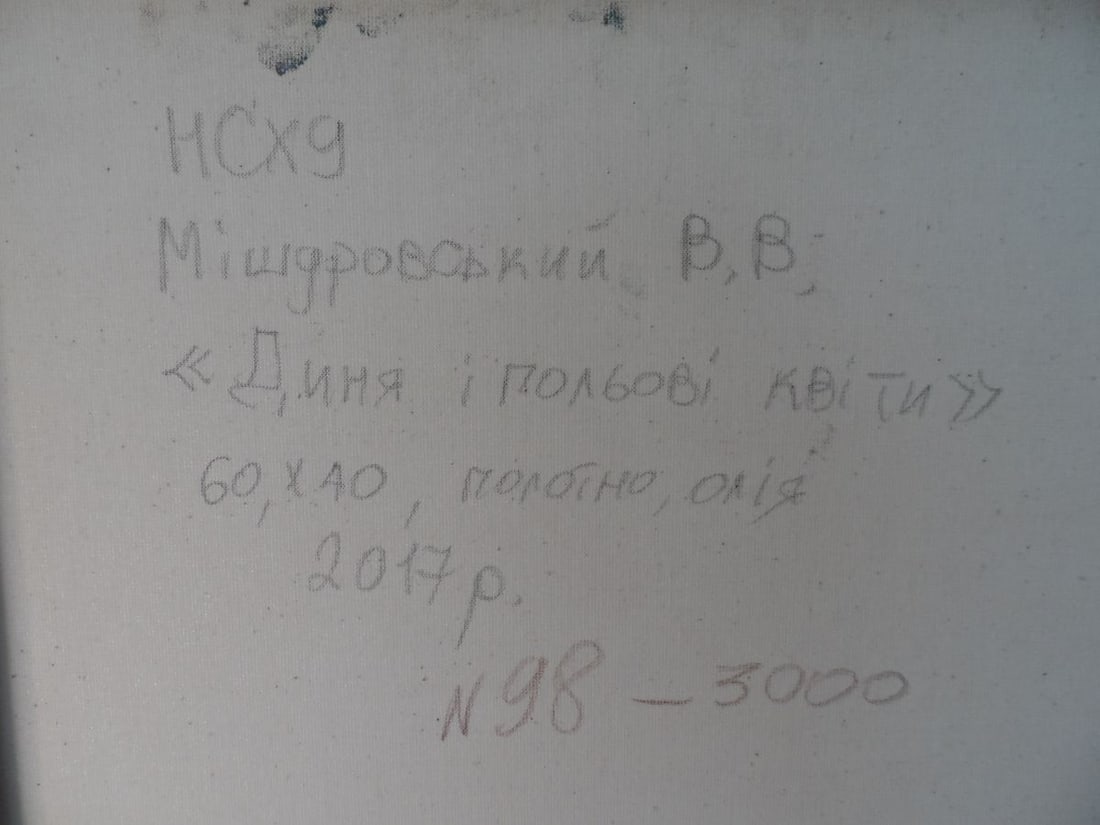 НСХУ
Мішуровський В.В.
«Диня і польові квіти»
60,Х40, полотно, олія
2017 р.
N 98 – 3000